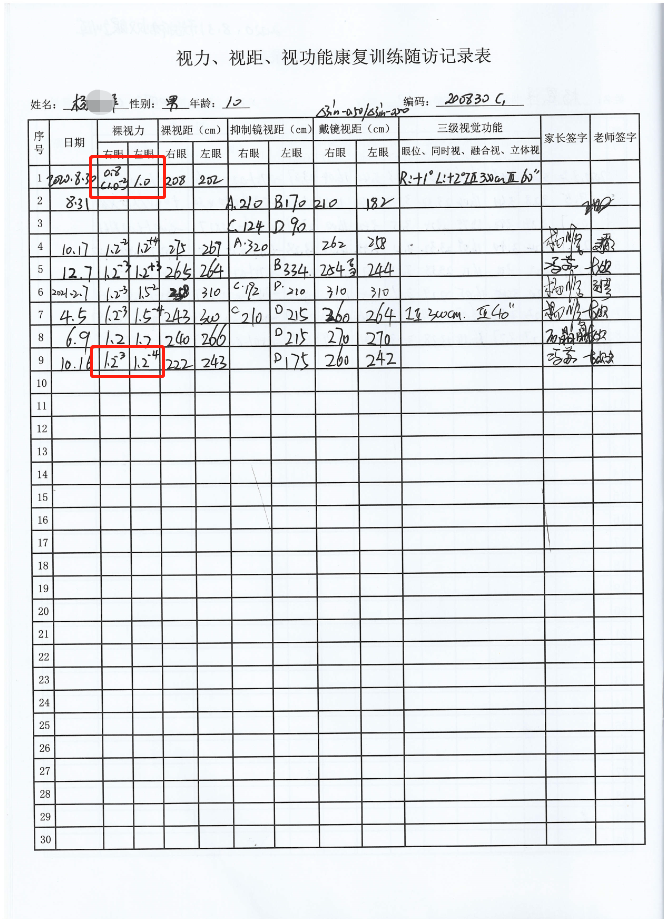 视力、视距、视功能康复训练随访记录表
姓名: 杨 性别: 男 年龄: 10 编码: 200830 C1
序号 日期 裸视力 裸视距（cm） 抑制镜视距（cm） 戴镜视距（cm） 三级视觉功能 家长签字 老师签字
右眼 左眼 右眼 左眼 右眼 左眼 右眼 左眼 眼位、同时视、融合视、立体视
1 2020.8.30 0.8 (1.0-2) 1.0 208 202 R:+1° L:+2° II 300cm III 60"
2 8.31 A.210 B.170 210 182
3 C.124 D.90
4 10.17 1.2-2 1.2+4 275 267 A:320 262 258
5 12.7 1.2-3 1.2+3 265 264 B334 254 244
6 2021.2.7 1.2-3 1.5-2 310 C:192 D:210 310 310
7 4.5 1.2-3 1.5-4 243 300 C210 D215 260 264 III 300cm. III 40"
8 6.9 1.2 1.2 240 266 D215 270 270
9 10.16 1.2-3 1.2-4 222 243 D175 260 242
10
11
12
13
14
15
16
17
18
19
20
21
22
23
24
25
26
27
28
29
30